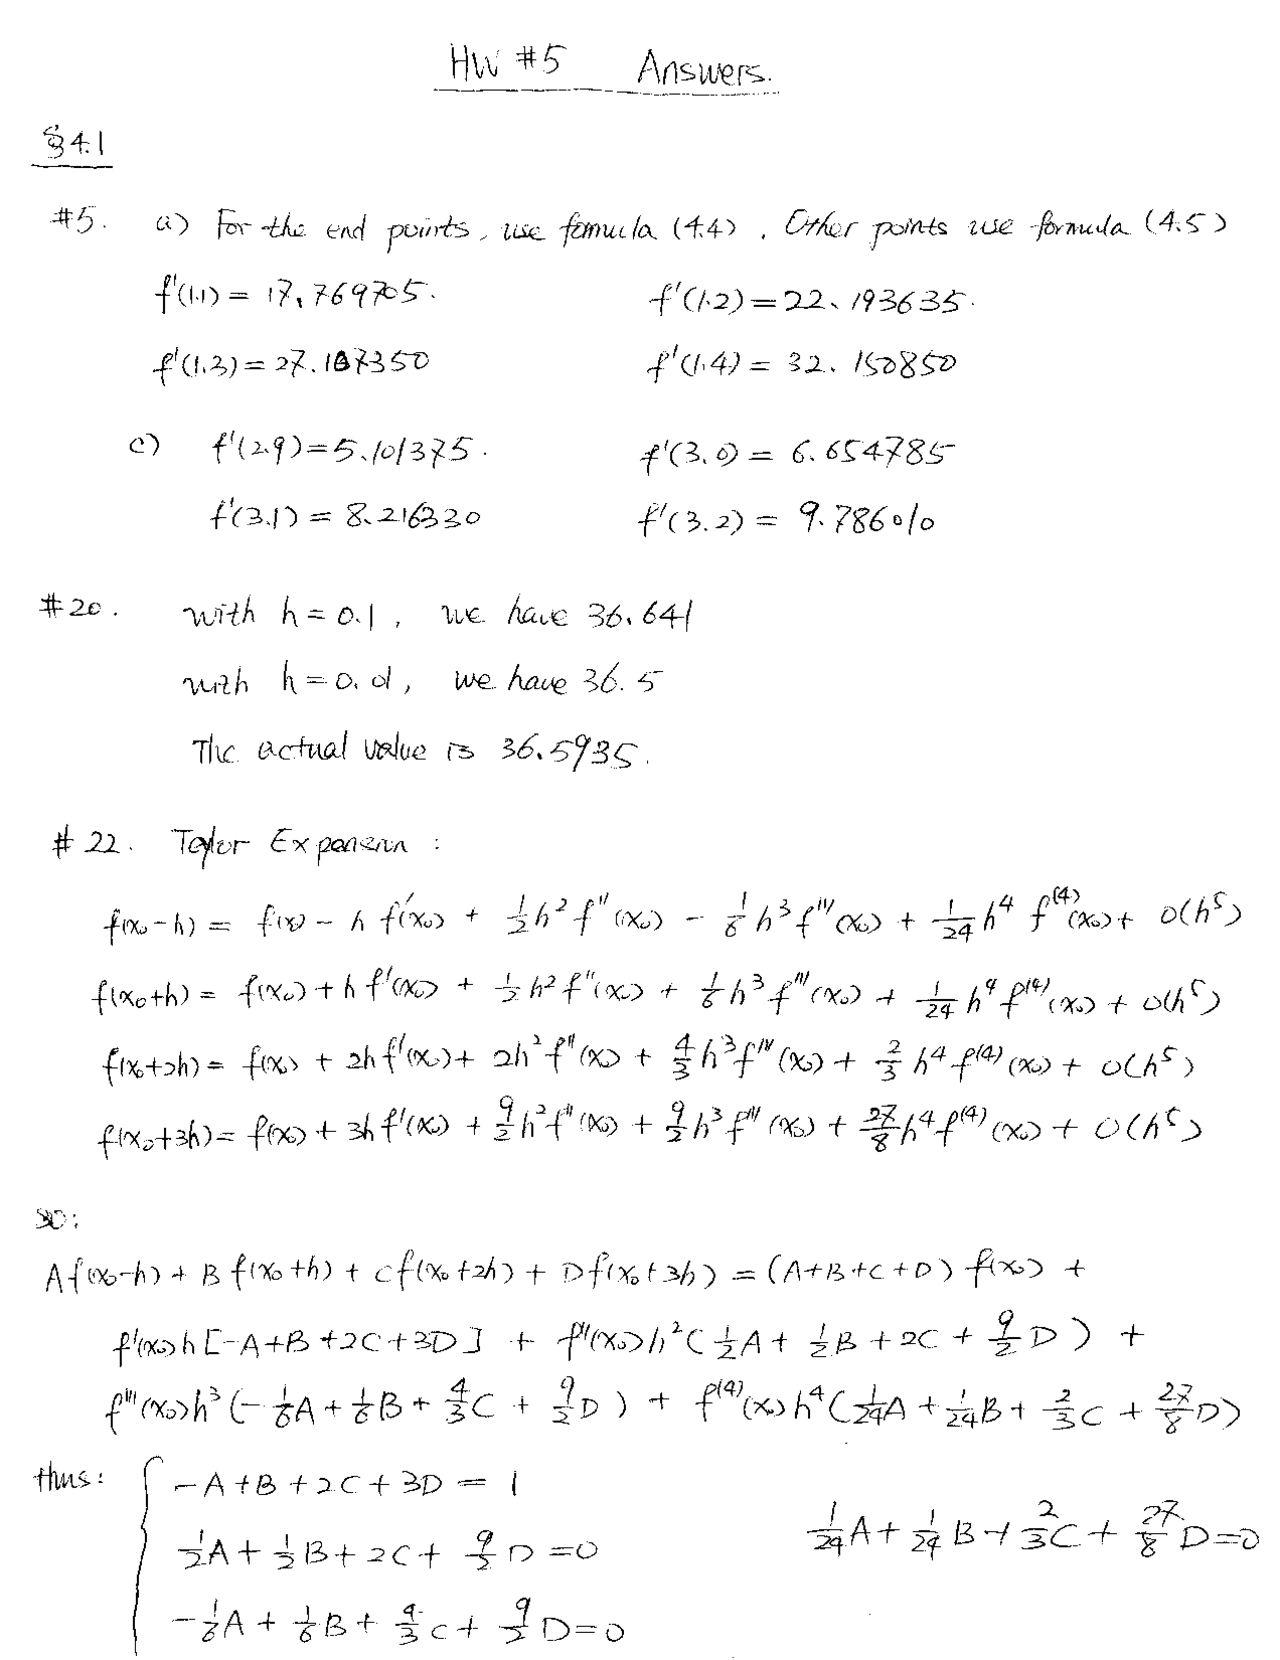 HW #5 Answers.
§4.1
#5. a) For the end points, use fomula (4.4), Other points use formula (4.5)
f'(1.1) = 17.769705. f'(1.2) = 22.193635.
f'(1.3) = 27.107350 f'(1.4) = 32.150850
c) f'(2.9) = 5.101375. f'(3.0) = 6.654785
f'(3.1) = 8.216330 f'(3.2) = 9.786010
#20. with h = 0.1, we have 36.641
with h = 0.01, we have 36.5
The actual value is 36.5935.
#22. Taylor Expansion :
f(x₀-h) = f(x₀) - h f'(x₀) + 1/2 h² f''(x₀) - 1/6 h³ f'''(x₀) + 1/24 h⁴ f⁽⁴⁾(x₀) + O(h⁵)
f(x₀+h) = f(x₀) + h f'(x₀) + 1/2 h² f''(x₀) + 1/6 h³ f'''(x₀) + 1/24 h⁴ f⁽⁴⁾(x₀) + O(h⁵)
f(x₀+2h) = f(x₀) + 2h f'(x₀) + 2h² f''(x₀) + 4/3 h³ f'''(x₀) + 2/3 h⁴ f⁽⁴⁾(x₀) + O(h⁵)
f(x₀+3h) = f(x₀) + 3h f'(x₀) + 9/2 h² f''(x₀) + 9/2 h³ f'''(x₀) + 27/8 h⁴ f⁽⁴⁾(x₀) + O(h⁵)
so:
A f(x₀-h) + B f(x₀+h) + C f(x₀+2h) + D f(x₀+3h) = (A+B+C+D) f(x₀) +
f'(x₀) h [-A+B+2C+3D] + f''(x₀) h² (1/2 A + 1/2 B + 2C + 9/2 D) +
f'''(x₀) h³ (-1/6 A + 1/6 B + 4/3 C + 9/2 D) + f⁽⁴⁾(x₀) h⁴ (1/24 A + 1/24 B + 2/3 C + 27/8 D)
thus: { -A + B + 2C + 3D = 1
1/2 A + 1/2 B + 2C + 9/2 D = 0 1/24 A + 1/24 B + 2/3 C + 27/8 D = 0
-1/6 A + 1/6 B + 4/3 C + 9/2 D = 0